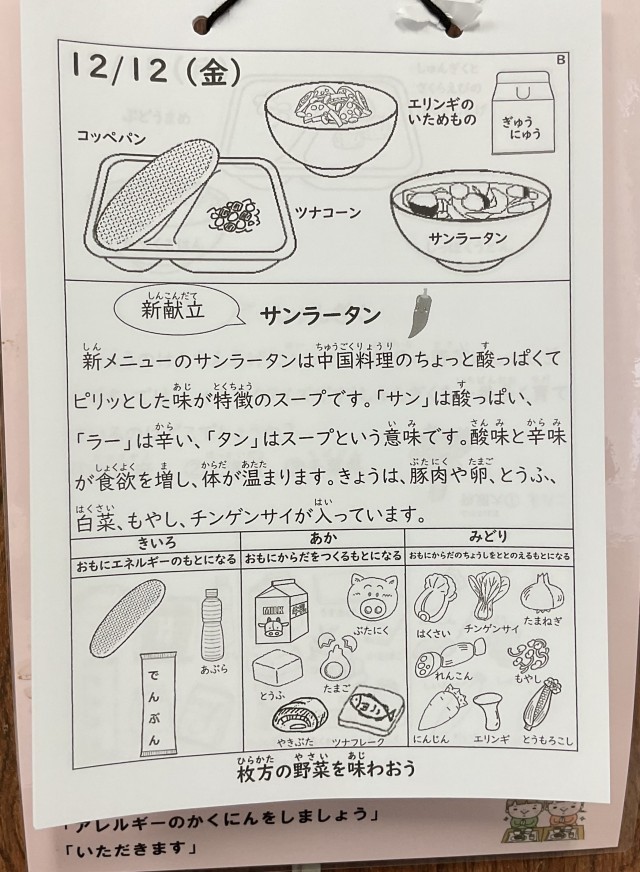 12/12（金）
B
コッペパン
エリンギの
いためもの
ぎゅう
にゅう
ツナコーン
サンラータン
しんこんだて
新献立
サンラータン
しん ちゅうごくりょうり す
新メニューのサンラータンは中国料理のちょっと酸っぱくて
あじ とくちょう す
ピリッとした味が特徴のスープです。「サン」は酸っぱい、
から いみ さんみ からみ
「ラー」は辛い、「タン」はスープという意味です。酸味と辛味
しょくよく ま からだ あたた ぶたにく たまご
が食欲を増し、体が温まります。きょうは、豚肉や卵、とうふ、
はくさい はい
白菜、もやし、チンゲンサイが入っています。
きいろ
おもにエネルギーのもとになる
あぶら
でんぷん
あか
おもにからだをつくるもとになる
MILK
牛乳
ぶたにく
とうふ
たまご
やきぶた
ツナフレーク
みどり
おもにからだのちょうしをととのえるもとになる
はくさい
チンゲンサイ
たまねぎ
れんこん
もやし
にんじん
エリンギ
とうもろこし
ひらかた やさい あじ
枚方の野菜を味わおう
「アレルギーのかくにんをしましょう」
「いただきます」